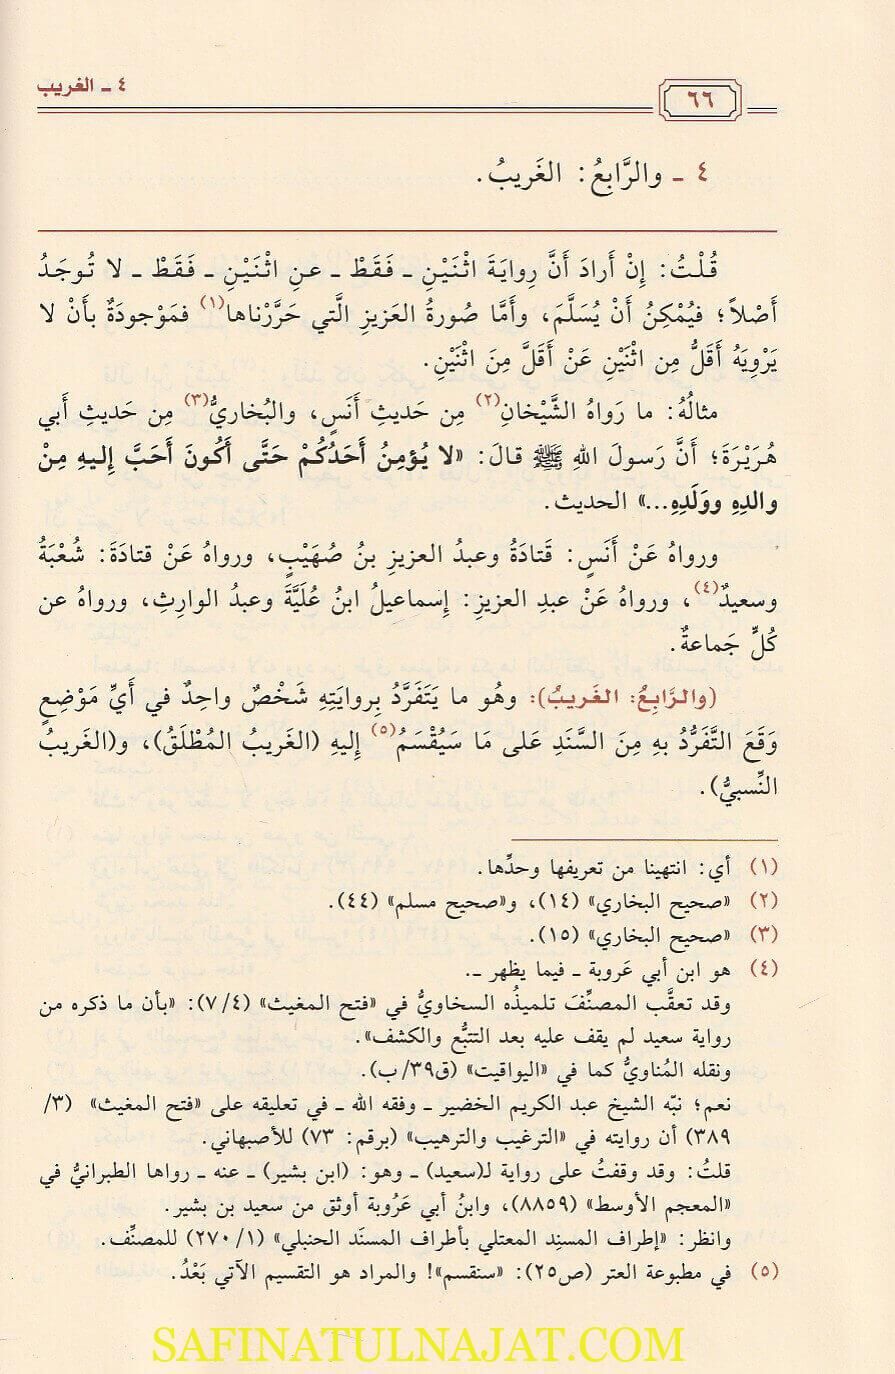 ٤ ـ الغريب
٦٦
٤ ـ والرَّابِعُ: الغَريبُ.
قُلْتُ: إِنْ أَرادَ أَنَّ رِوايَةَ اثْنَيْنِ ـ فَقَطْ ـ عنِ اثْنَيْنِ ـ فَقَطْ ـ لا تُوجَدُ
أَصْلاً؛ فيُمْكِنُ أَنْ يُسَلَّمَ، وأَمَّا صُورةُ العَزيزِ الَّتي حَرَّرْناها(١) فمَوْجودَةٌ بأَنْ لا
يَرْوِيَهُ أَقَلُّ مِن اثْنَيْنِ عَنْ أَقَلَّ مِنَ اثْنَيْنِ.
مثالُهُ: ما رَواهُ الشَّيْخانِ(٢) مِن حَديثِ أَنَسٍ، والبُخاريُّ(٣) مِن حَديثِ أَبي
هُرَيْرَةَ؛ أَنَّ رَسولَ اللهِ ﷺ قالَ: «لا يُؤمِنُ أَحَدُكُمْ حَتَّى أَكُونَ أَحَبَّ إِليهِ مِنْ
والدِهِ ووَلَدِهِ...» الحديث.
ورواهُ عَنْ أَنَسٍ: قَتادَةُ وعبدُ العزيزِ بنُ صُهَيْبٍ، ورواهُ عَنْ قتادَةَ: شُعْبَةُ
وسعيدٌ(٤)، ورواهُ عَنْ عبدِ العزيزِ: إِسماعيلُ ابنُ عُلَيَّةَ وعبدُ الوارِثِ، ورواهُ عن
كُلٍّ جَماعةٌ.
(والرَّابِعُ: الغَريبُ): وهُو ما يَتَفَرَّدُ بِروايَتِهِ شَخْصٌ واحِدٌ في أَيِّ مَوْضِعٍ
وَقَعَ التَّفَرُّدُ بهِ مِنَ السَّنَدِ عَلى مَا سَيُقْسَمُ(٥) إِليهِ (الغَريبُ المُطْلَقُ)، و(الغَريبُ
النِّسبيُّ).
(١) أي: انتهينا من تعريفها وحدِّها.
(٢) «صحيح البخاري» (١٤)، و«صحيح مسلم» (٤٤).
(٣) «صحيح البخاري» (١٥).
(٤) هو ابن أبي عَروبة ـ فيما يظهر ـ.
وقد تعقَّب المصنِّفَ تلميذُه السخاويُّ في «فتح المغيث» (٧/٤): «بأن ما ذكره من
رواية سعيد لم يقف عليه بعد التتبُّع والكشف».
ونقله المُناويُّ كما في «اليواقيت» (ق٣٩/ب).
نعم؛ نبّه الشيخ عبد الكريم الخضير ـ وفقه الله ـ في تعليقه على «فتح المغيث» (٣/
٣٨٩) أن روايته في «الترغيب والترهيب» (برقم: ٧٣) للأصبهاني.
قلتُ: وقد وقفتُ على رواية لـ(سعيد) ـ وهو: (ابن بشير) ـ عنه ـ رواها الطبرانيُّ في
«المعجم الأوسط» (٨٨٥٩)، وابنُ أبي عَرُوبة أوثق من سعيد بن بشير.
وانظر: «إطراف المسنِد المعتلي بأطراف المسنَد الحنبلي» (٢٧٠/١) للمصنِّف.
(٥) في مطبوعة العتر (ص٢٥): «سنقسم»! والمراد هو التقسيم الآتي بَعْدُ.
SAFINATULNAJAT.COM